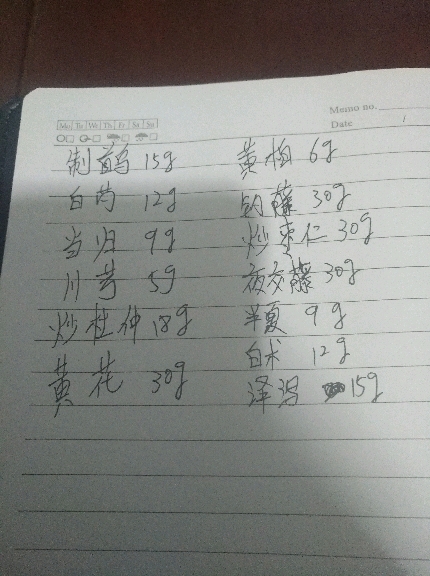 Memo no.
Mo Tu We Th Fr Sa Su
Date /
制首乌 15g 黄柏 6g
白芍 12g 钩藤 30g
当归 9g 炒枣仁 30g
川芎 5g 夜交藤 30g
炒杜仲 18g 半夏 9g
白术 12g
黄花 30g 泽泻 15g